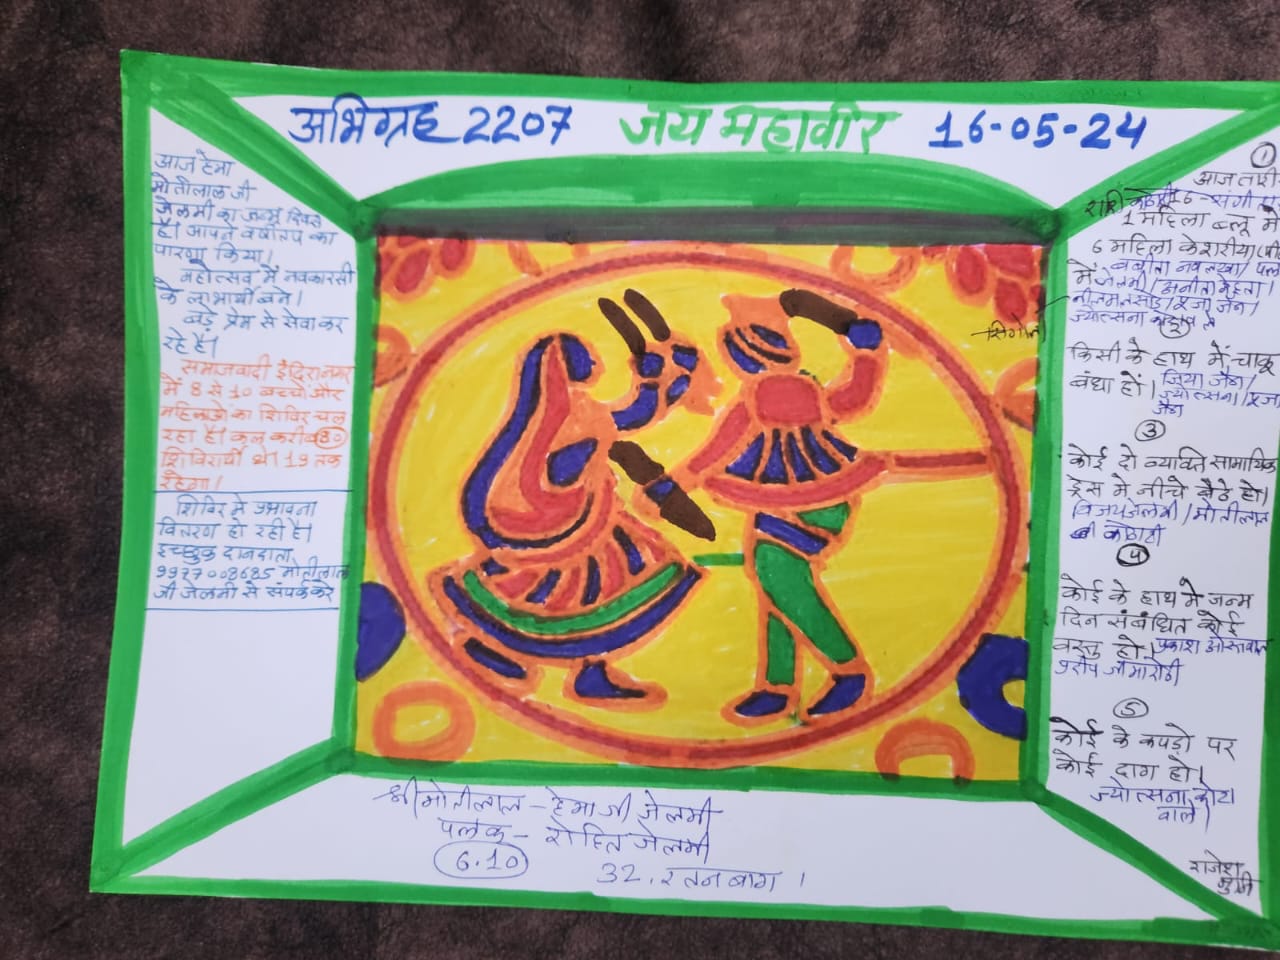 अभिग्रह 2207 जय महावीर 16-05-24
आज हेमा
मोतीलाल जी
जेलमी का जन्म दिवस
है। आपने वर्षीतप का
पारणा किया।
महोत्सव में नवकारसी
के लाभार्थी बने।
बड़े प्रेम से सेवा कर
रहे है।
समाजवादी इंदिरा नगर
में 8 से 10 बच्चों और
महिलाओं का शिविर चल
रहा है। कुल करीब 80
शिविरार्थी थे। 19 तक
रहेगा।
शिविर मे प्रभावना
वितरण हो रही है।
इच्छुक दानदाता
9977008685 मोतीलाल
जी जेलमी से संपर्क करे
1
आज तारी
16
1 महिला ब्लू मे
6 महिला केशरीया
में जेलमी / अनीता मेहता।
पूजा जैन/
ज्योत्सना
2
किसी के हाथ में चाकू
बंधा हों। जिया जैन/
ज्योत्सना/पूजा
जैन
3
कोई दो व्यक्ति सामायिक
ड्रेस मे नीचे बैठे हो।
विजय जेलमी / मोतीलाल
4
कोई के हाथ मे जन्म
दिन संबंधित कोई
वस्तु हो। प्रकाश ओस्तवाल
5
कोई के कपड़ो पर
कोई दाग हो।
ज्योत्सना कोटा
वाले
राजेश
मुनि
श्री मोतीलाल - हेमा जी जेलमी
पलक - रोहित जेलमी
6.10
32, रतन बाग।